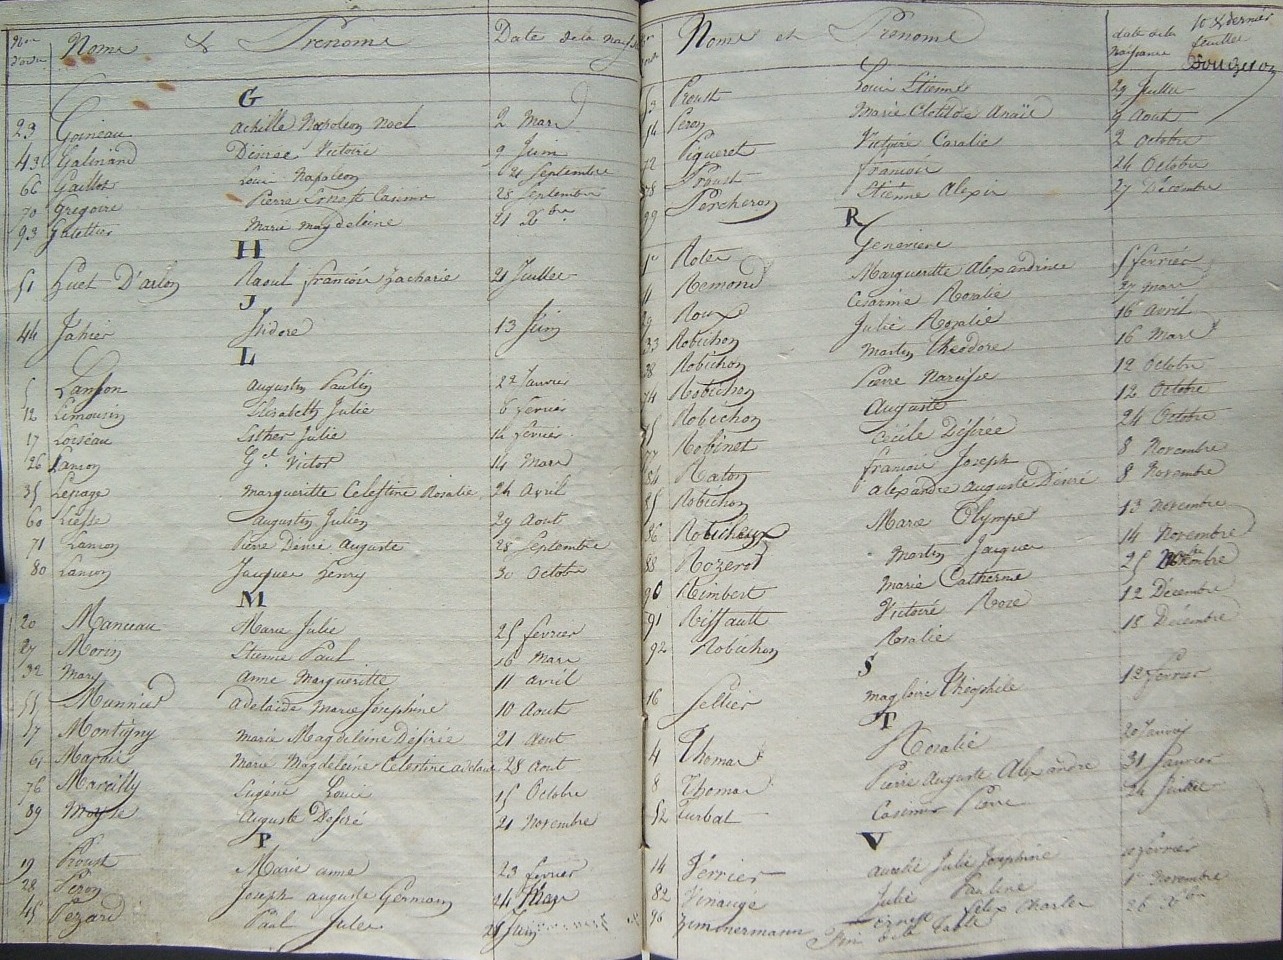 Noms & Prenoms Date de la naiss
G
23 Goineau achille Napoléon Noel 2 Mars
43 Galinand Désirée Victoire 9 Juin
66 Gaillot Louis Napoleon 21 Septembre
70 Gregoire Pierre Casimir 28 Septembre
93 Marie magdeleine 21 Xbre
H
51 Huet D'arlon Raoul françois Zacharie 21 Juillet
J
44 Jahier Isidore 13 Juin
L
5 Lanson augustin Paulin 22 Janvier
12 Limousin Elisabeth Julie 8 fevrier
17 Loiseau Esther Julie 14 fevrier
26 Lanson Victor 14 Mars
35 Lepage Margueritte Celestine Rosalie 24 Avril
60 Liesse augustin Julien 29 Aout
71 Lanson Pierre Désiré Auguste 28 Septembre
80 Lanson Jacques henry 30 Octobre
M
20 Manceau Marie Julie 25 fevrier
27 Morin Etienne Paul 16 Mars
32 Mary anne Margueritte 11 avril
55 Munnier adelaide Marie Josephine 10 Aout
57 Montigny Marie Magdeleine Désirée 21 Aout
61 Marais Marie Magdeleine Celestine 28 Aout
76 Marcilly Eugéne Louis 15 Octobre
89 Moyse Auguste Desiré 21 Novembre
P
19 Proust Marie anne 23 fevrier
28 Peron Joseph auguste Germain 24 Mars
45 Pezard Paul Jules Juin
Noms et Prenoms date de la Naissance
10 & dernier feuillet
Proust Louis Etienne 29 Juillet
54 Peron Marie Clotilde Anaïs 9 Aout
72 Pigueret Victoire Caralie 2 Octobre
78 Proust francois 24 Octobre
99 Percheron Etienne Alexis 27 Décembre
R
Genevieve
Remond Margueritte Alexandrine 5 fevrier
Roux Césarine Rosalie 27 mars
33 Robichon Julie Rosalie 16 avril
38 Robichon Martin Théodore 16 Mars
74 Robichon Pierre Narcisse 12 Octobre
75 Robichon Auguste 12 Octobre
77 Robinet Cécile Désirée 24 Octobre
84 Raton francois Joseph 8 Novembre
85 Robichon alexandre auguste Désiré 8 Novembre
86 Robicheux Marie Olympe 13 Novembre
88 Rozerot Martin Jacques 14 Novembre
90 Rimbert Marie Catherine 25
91 Riffault Victoire Rose 12 Décembre
92 Robichon Rosalie 18 Décembre
S
16 Sellier magloire Théophile 12 fevrier
T
4 Thomas Rosalie 20 Janvier
8 Thomas Pierre Auguste Alexandre 31 Janvier
52 Turbat Casimir Pierre 24 Juillet
V
14 Verrier aurelie Julie Josephine fevrier
82 Vinauge Julie Pauline 1er Novembre
96 Zimmermann ernest felix Charles 26 Xbre
Fin de la table